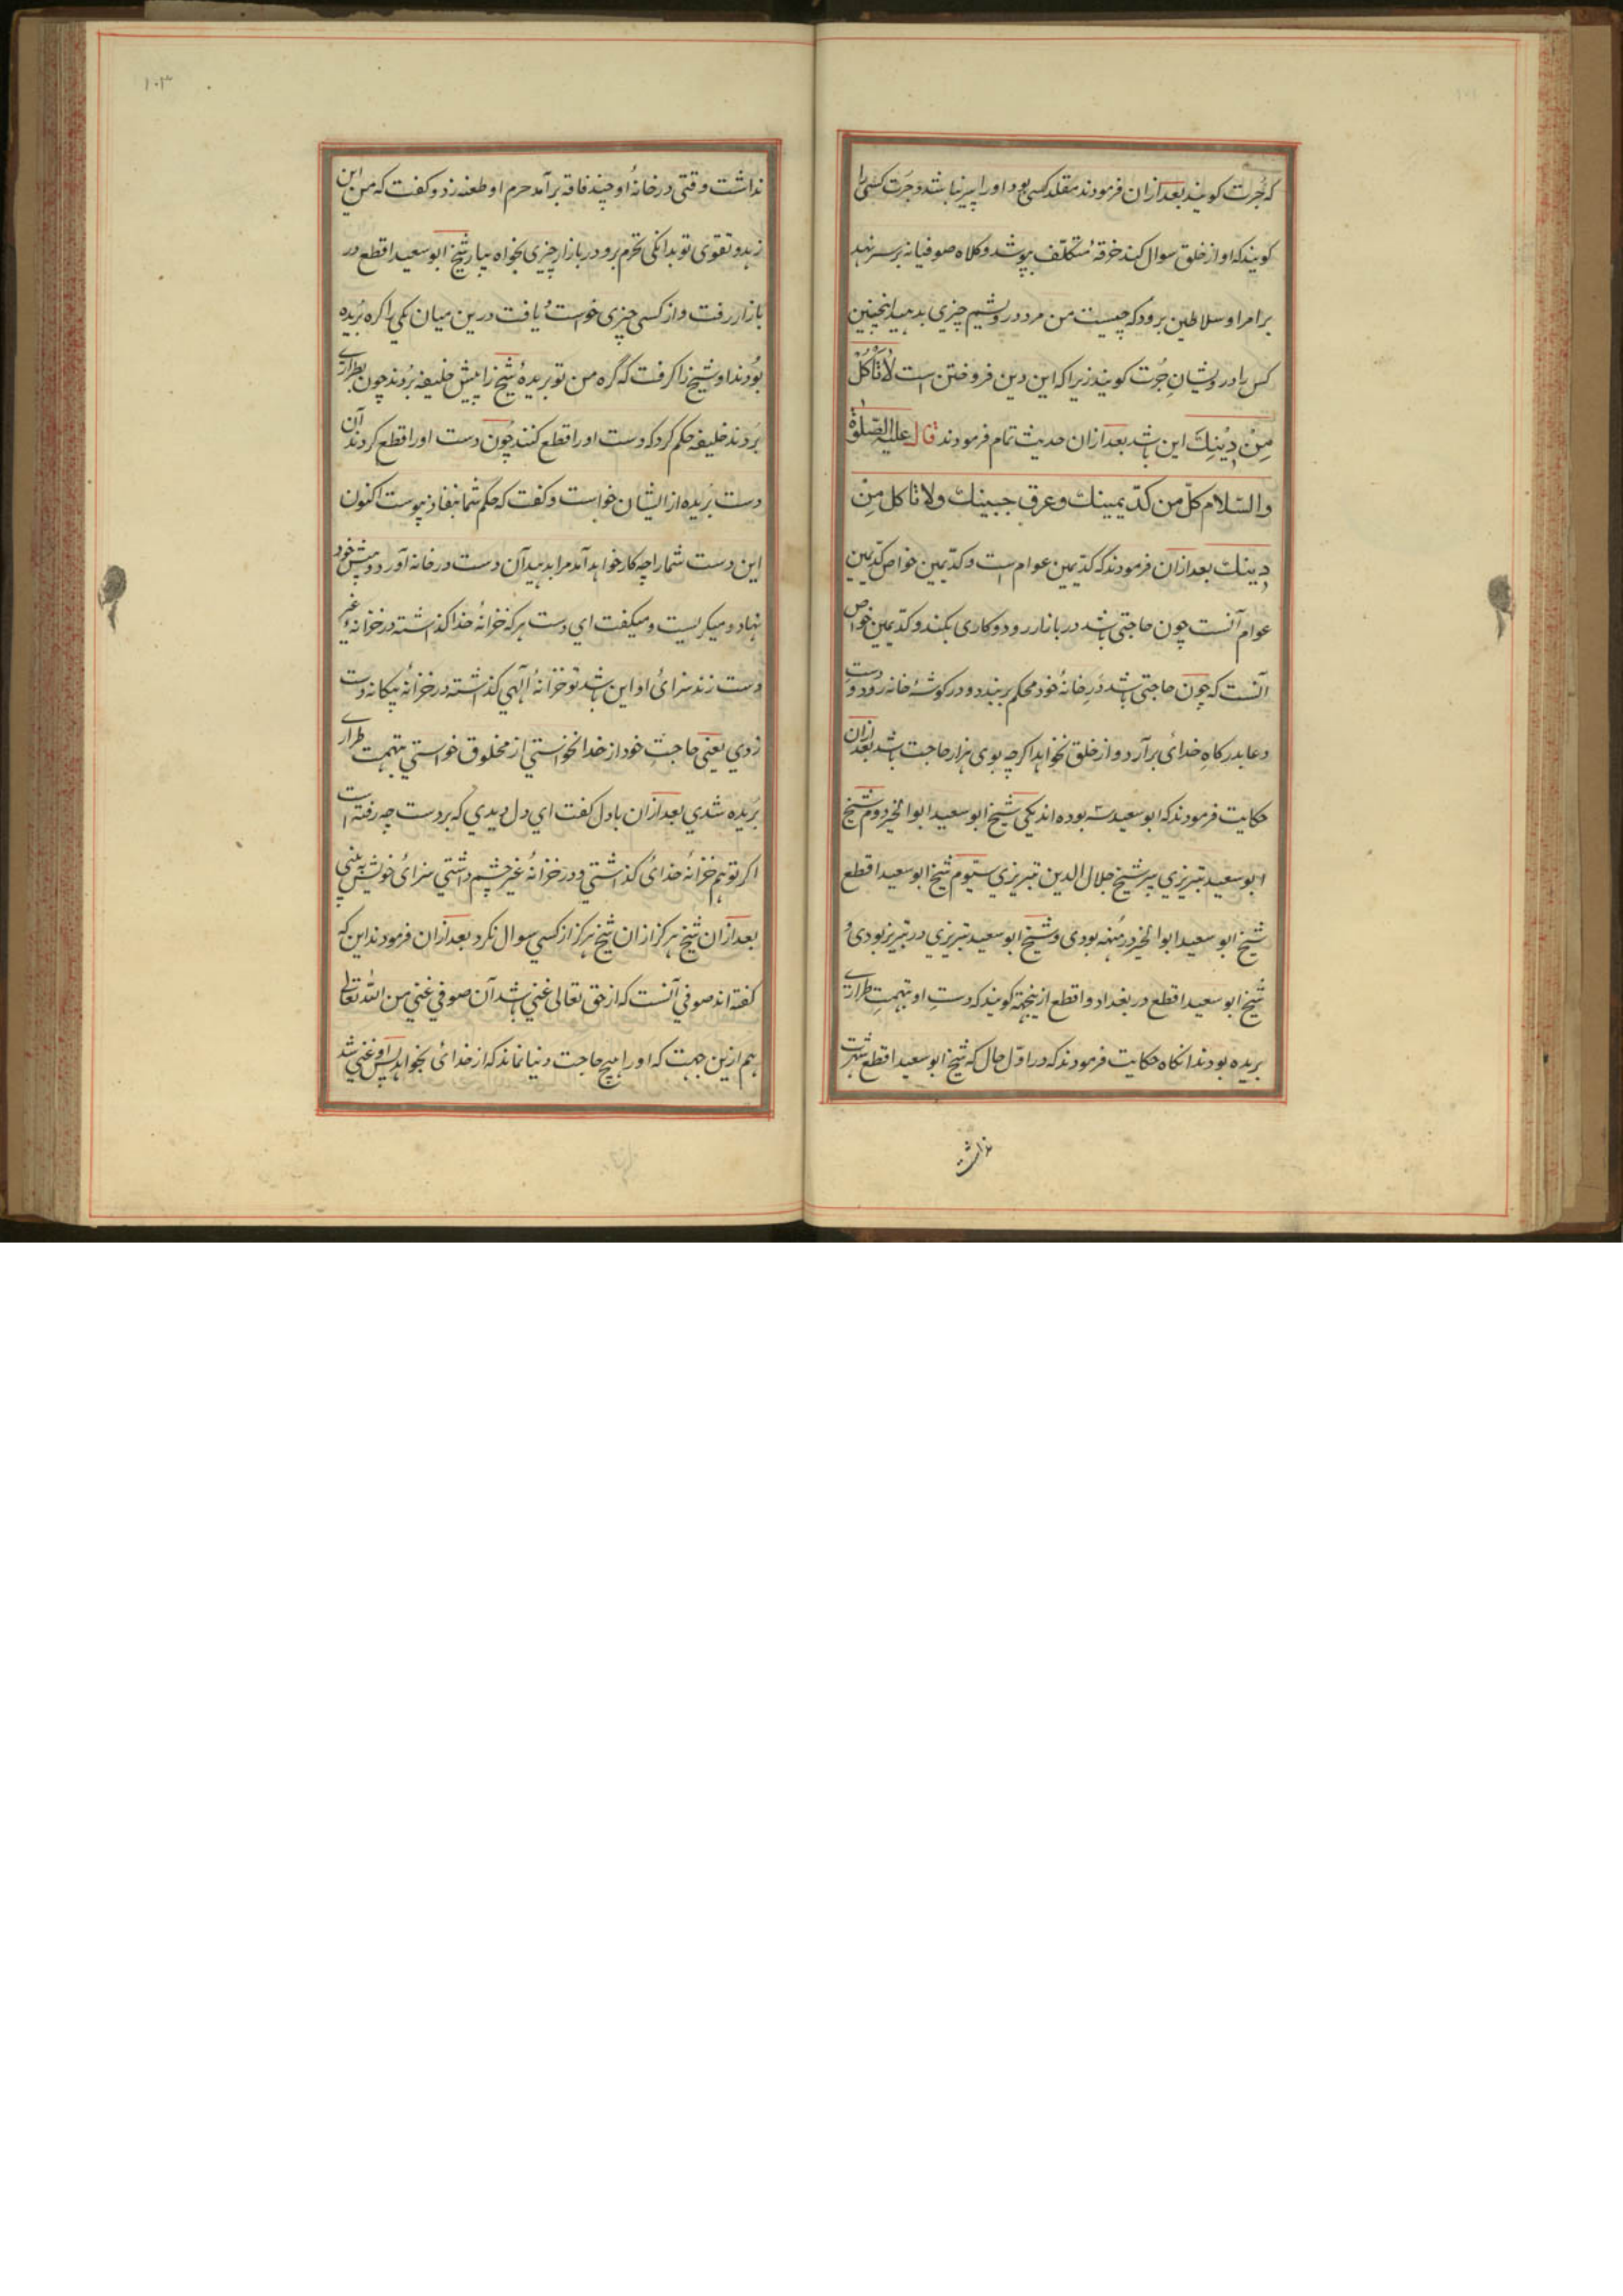 که جُرت کویند بعد ازان فرمودند مقلد کسی بود اورا پیر نباشد و جَرَت کسی را
کویند که او از خلق سوال کند خرقهٔ متکلّف بپوشد و کلاه صوفیانه بر سر نهد
بر امرا و سلاطین برود که چیست من مرد درویشم چیزی بدهید اینچنین
کس را درویشانِ جُرت کویند زیرا که این دین فروختن است لَاتَأکُلْ
مِنْ دِیْنِكَ این باشد بعد ازان حدیث تمام فرمودند قال علیه الصّلوٰة
والسّلام کلّ من کدّ یمینك وعرق جبینك ولا تاکل مِنْ
دِینك بعد ازان فرمودند که کدّ یمین عوام است و کدّ یمین خواص کدّ یمین
عوام آنست چون حاجتی باشد در بازار رود و کاری بکند و کدّ یمین خواص
آنست که چون حاجتی باشد دَرِ خانهٔ خود محکم بر بندد و در کوشهٔ خانه رَوَد و دست
دعا بدرکاهِ خدائ بر آرد و از خلق نخواهد اکرچه بوی هزار حاجت باشد بعد ازان
حکایت فرمودند که ابو سعید سه بوده اند یکی شیخ ابو سعید ابو الخیر دوم شیخ
ابو سعید تبریزي پیر شیخ جلال الدین تبریزي سیّوم شیخ ابو سعید اقطع
شیخ ابو سعید ابو الخیر در مَهنه بودی و شیخ ابو سعید تبریزي در تبریز بودی و
شیخ ابو سعید اقطع در بغداد و اقطع ازینجهة کویند که دستِ او بتهمتِ طرارے
بریده بودند انکاه حکایت فرمودند که در اوّل حال که شیخ ابو سعید اقطع شهرت
نداشت
۱۰۳
نداشت وقتی در خانهٔ او چند فاقه بر آمد حرم او طعنه زد و کفت که من این
زهد و تقوی تو بدانکی نخرم برو در بازار چیزی بخواه بیار شیخ ابو سعید اقطع در
بازار رفت و از کسی چیزی خواست و یافت درین میان یکی را کره بُریده
بُودند او شیخ را کرفت که گره من تو بریدهٔ شیخ را پیش خلیفه بُردند چون بطرارے
بُردند خلیفه حکم کرد که دست اورا قطع کنند چُون دست اورا قطع کردند آن
دست بُریده از ایشان خواست و کفت که حکم شما بنفاذ پیوست اکنون
این دست شمارا چه کار خواهد آمد مرا بدهید آن دست در خانه آورد و پیش خود
نهاد و میکریست و میکفت اي دست هر که خزانهٔ خدا کذاشته در خزانهٔ غیر
دست زند سزائ او این باشد تو خزانهٔ الٓهي کذاشته در خزانهٔ بیکانه دست
زدي یعني حاجتِ خود از خدا نخواستي از مخلوق خواستي بتهمت طرارے
بُریده شدي بعد ازان با دل کفت اي دل دیدي که بر دست چه رفته است
اکر تو هم خزانهٔ خدائ کذاشتي و در خزانهٔ غیر چشم داشتي سزائ خویش به بیني
بعد ازان شیخ هرکز ازان شیخ هرکز از کسي سوال نکرد بعد ازان فرمودند این که
کفته اند صوفي آنست که از حق تعالی غني باشد آن صوفي غني من اللّه تعالی
هم ازین جهت که اورا هیچ حاجت دنیا نماند که از خدائ بخواهد پس او غني شد